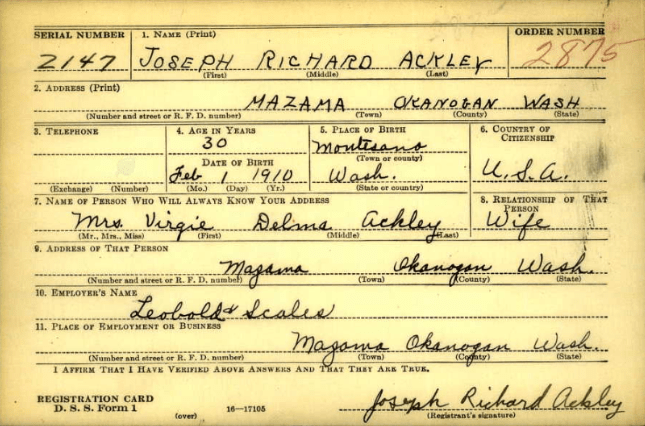 SERIAL NUMBER 1. NAME (Print) ORDER NUMBER
2147 JOSEPH RICHARD ACKLEY 2875
(First) (Middle) (Last)
2. ADDRESS (Print)
MAZAMA OKANOGAN WASH
(Number and street or R. F. D. number) (Town) (County) (State)
3. TELEPHONE 4. AGE IN YEARS 5. PLACE OF BIRTH 6. COUNTRY OF CITIZENSHIP
30 Montesano
(Town or county)
DATE OF BIRTH
Feb 1 1910 Wash. U.S.A.
(Exchange) (Number) (Mo.) (Day) (Yr.) (State or country)
7. NAME OF PERSON WHO WILL ALWAYS KNOW YOUR ADDRESS 8. RELATIONSHIP OF THAT PERSON
Mrs. Virgie Delma Ackley Wife
(Mr., Mrs., Miss) (First) (Middle) (Last)
9. ADDRESS OF THAT PERSON
Mazama Okanogan Wash.
(Number and street or R. F. D. number) (Town) (County) (State)
10. EMPLOYER'S NAME
Leobold & Scales
11. PLACE OF EMPLOYMENT OR BUSINESS
Mazama Okanogan Wash.
(Number and street or R. F. D. number) (Town) (County) (State)
I AFFIRM THAT I HAVE VERIFIED ABOVE ANSWERS AND THAT THEY ARE TRUE.
REGISTRATION CARD
D. S. S. Form 1 16—17105 Joseph Richard Ackley
(over) (Registrant's signature)